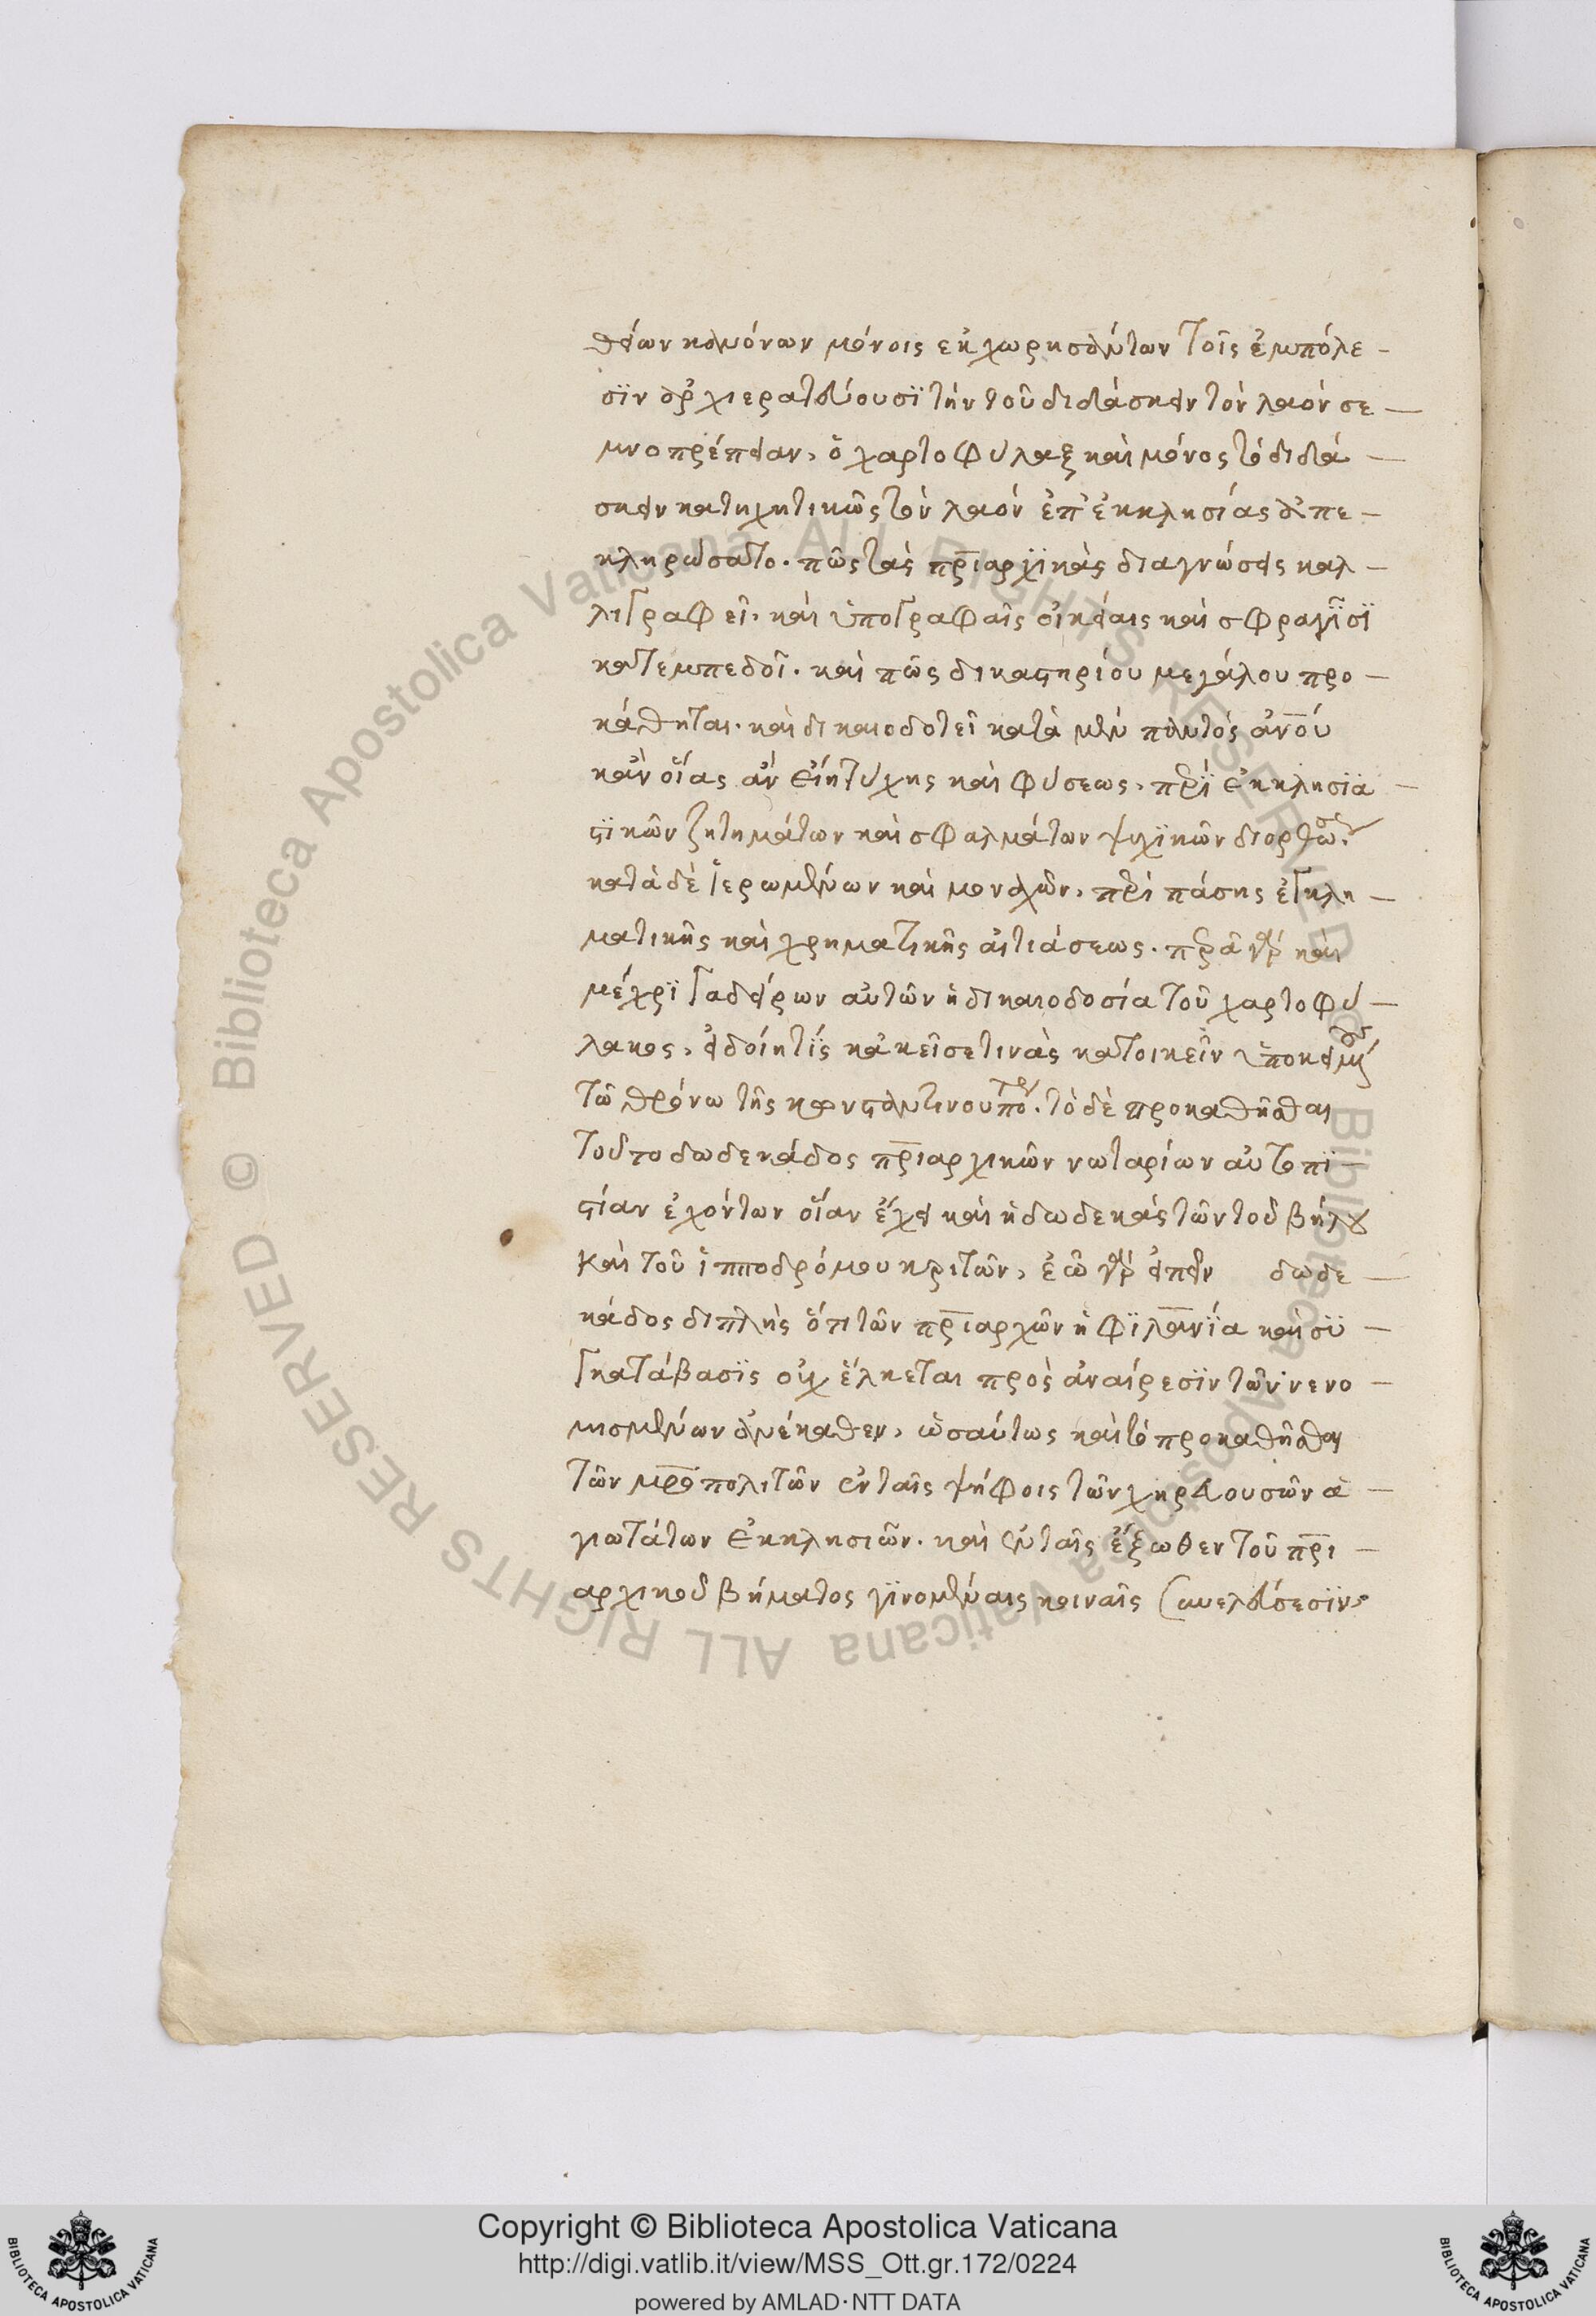 θείων κανόνων μόνοις ἐκχωρησάντων τοῖς ἐμπόλε -
σϊν ἀρχιερατεύουσϊ τὴν τοῦ διδάσκειν τὸν λαὸν σε -
μνοπρέπειαν, ὁ χαρτοφυλαξ καὶ μόνος τὸ διδά -
σκειν κατηχητικῶς τὸν λαὸν ἐπ' ἐκκλησίας ἀπε -
κληρώσατο. πῶς τὰς πριαρχϊκὰς διαγνώσεις καλ -
λιγραφεῖ. καὶ ὑπογραφαῖς οἰκείαις καὶ σφραγῖσϊ
κατεμπεδοῖ. καὶ πῶς δικαστηρίου μεγάλου προ -
κάθηται. καὶ δικαιοδοτεῖ κατὰ μὲν παντὸς ἀνου
κἂν οἵας ἂν εἴη τύχης καὶ φύσεως. περὶ ἐκκλησϊα -
στϊκῶν ζητημάτων καὶ σφαλμάτων ψυχϊκῶν διορθώσ.
κατὰ δὲ ἱερωμένων καὶ μοναχῶν, περὶ πάσης ἐγκλη -
ματικῆς καὶ χρηματικῆς αἰτιάσεως. περᾶ γὰρ καὶ
μέχρϊ γαδείρων αὐτῶν ἡ δικαιοδοσία τοῦ χαρτοφύ -
λακος, εἰ δοίη τίς κἀκεῖσε τινὰς κατοικεῖν ὑποκειμένους
τῶ θρόνω τῆς κωνσταντινουπό. τὸ δὲ προκαθῆσθαι
τοῦτο δωδεκάδος πριαρχικῶν νωταρίων αὐτοπϊ -
στίαν ἐχόντων οἵαν ἔχει καὶ ἡ δωδεκὰς τῶν τοῦ βήλου
καὶ τοῦ ἱπποδρόμου κριτῶν, ἐῶ γὰρ εἰπεῖν δωδε -
κάδος διπλῆς ὅτι τῶν πριαρχῶν ἡ φϊλανϊα καὶ ἡ συ -
γκατάβασϊς οὐχ ἕλκεται πρὸς ἀναίρεσϊν τῶν νενο -
μισμένων ἀνέκαθεν, ὡσαύτως καὶ τὸ προκαθῆσθαι
τῶν μροπολιτῶν ἐν ταῖς ψήφοις τῶν χηρευουσῶν ἁ -
γιωτάτων ἐκκλησιῶν. καὶ ἐν ταῖς ἔξωθεν τοῦ πρι -
αρχικοῦ βήματος γϊνομέναις κοιναῖς συνελεύσεσϊν